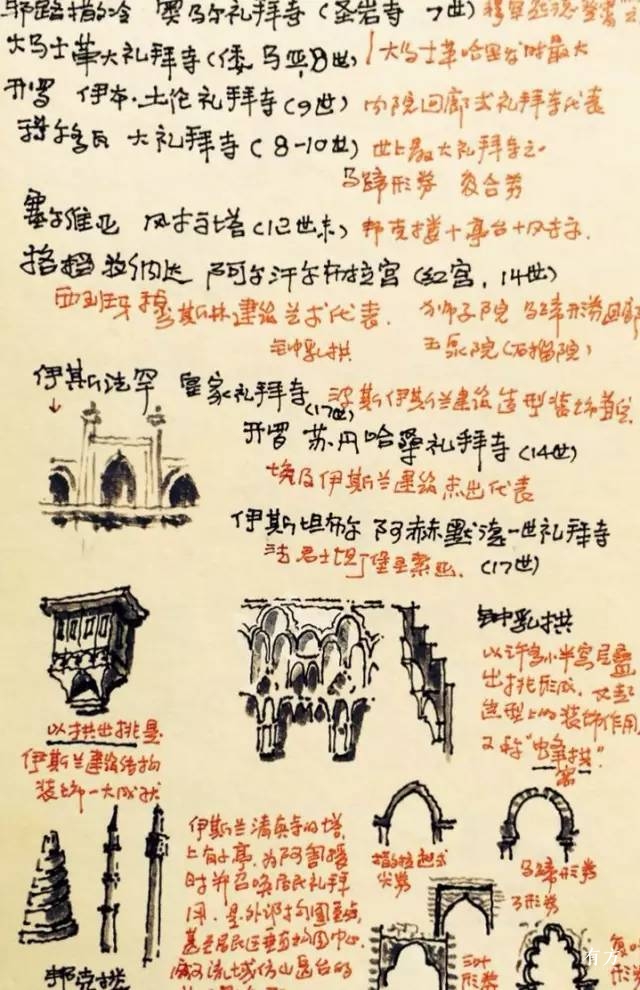 耶路撒冷 奥马尔礼拜寺（圣岩寺 7世）
大马士革大礼拜寺（倭马亚，8世） 大马士革哈里发时最大
开罗 伊本·土伦礼拜寺（9世） 内院回廊式礼拜寺代表
科尔多瓦 大礼拜寺（8-10世） 世上最大礼拜寺之一
马蹄形券 复合券
塞尔维亚 风标塔（12世末） 邦克楼+亭台+风标
格拉纳达 阿尔汗布拉宫（红宫，14世）
西班牙穆斯林建筑艺术代表. 狮子院 马蹄形券回廊
钟乳拱 玉泉院（石榴院）
伊斯法罕 皇家礼拜寺（17世） 波斯伊斯兰建筑造型装饰
开罗 苏丹哈桑礼拜寺（14世）
埃及伊斯兰建筑杰出代表
伊斯坦布尔 阿赫默德一世礼拜寺
法君士坦丁堡圣索亚.（17世）
钟乳拱
以许多小半穹层叠
出挑形成，又起
造型上的装饰作用
又称"蜂窝拱"
以拱出挑是
伊斯兰建筑结构
装饰一大成就
伊斯兰清真寺的塔
上有小亭，为阿訇授
时并召唤居民礼拜
用，是外部构图重点，
甚至居民区垂直构图中心.
两河流域仿山岳台的
尖券
马蹄形券
三叶
形券
邦克楼
有方